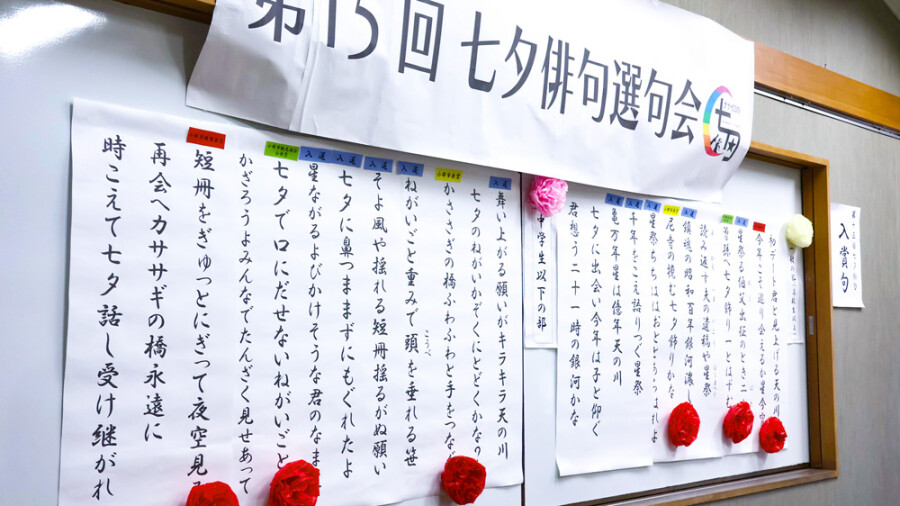 第15回 七夕俳句選句会
入賞句
初デート君と見上げる天の川
今年こそ巡り会えるか星今宵
星祭る伯父出征のとき二
へ七夕飾り一とはずむ
読み返す夫の遺稿や星祭
鎮魂の昭和百年銀河濃し
尼寺の撓む七夕飾りかな
星祭ちち
千年をこえ語りつぐ星祭
億万年星は億年天の川
七夕に出会い今年は子と仰ぐ
君想う二十一時の銀河かな
中学生以下の部
入選
舞い上がる願いがキラキラ天の川
七夕のねがいかぞくにとどくかな
かささぎの橋ふわふわと手をつな
入選
ねがいごと重みで頭を垂れる笹
こうべ
入選
そよ風や揺れる短冊揺るがぬ願い
入選
七夕に鼻つままずにもぐれたよ
入選
星ながるよびかけそうな君のなま
七夕で口にだせないねがいごと
かざろうよみんなでたんざく見せあって
短冊をぎゅっとにぎって夜空見
再会へカササギの橋永遠に
時こえて七夕話し受け継がれ